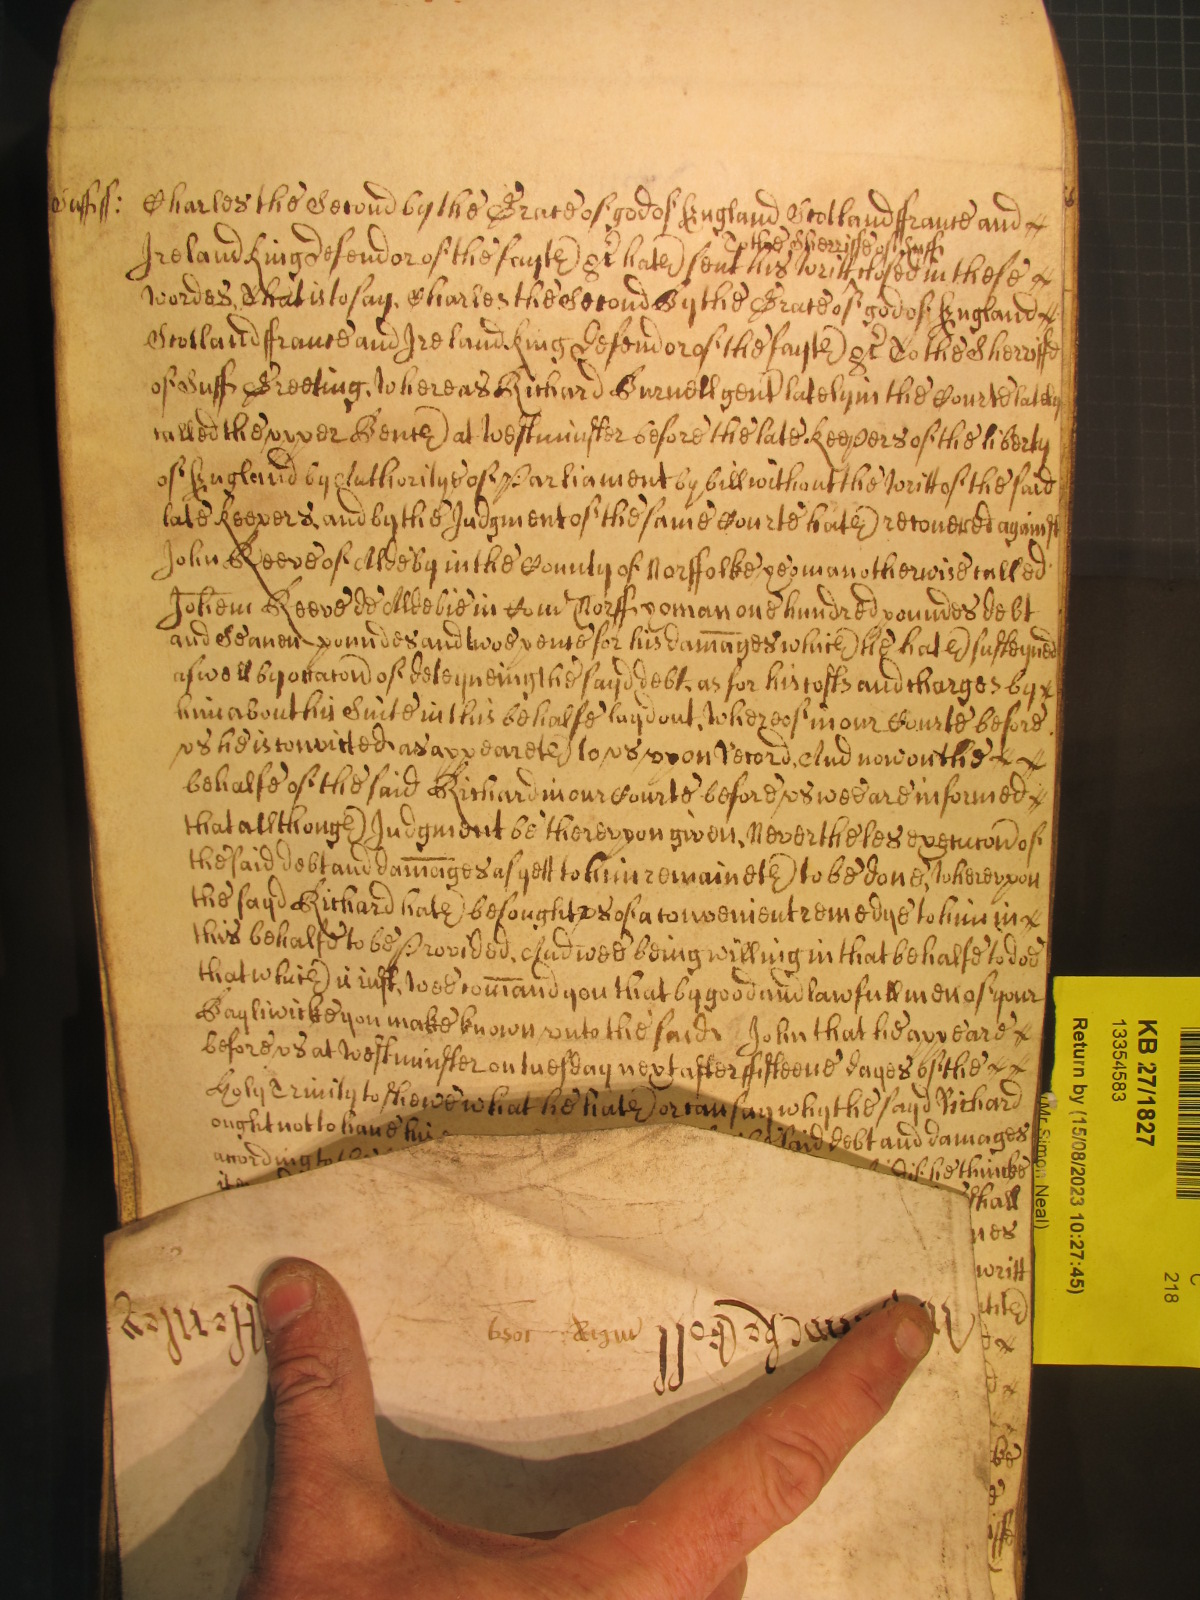 Suff: Charles the Second by the Grace of god of England Scotland ffrance and
Ireland King Defendor of the fayth &c hath sent his Writt closed in these
To the Sherriffe of Suff
wordes, That is to say, Charles the Second by the Grace of god of England
Scotland ffrance and Ireland King Defendor of the fayth &c To the Sherriffe
of Suff Greeting, Whereas Richard Burnell gent lately in the Courte lately
called the upper Bench at Westminster before the late keepers of the liberty
of England by Authoritye of Parliament by bill without the Writt of the said
late keepers, and by the Judgment of the same Courte hath recovered against
John Reeve of Aldeby in the County of Norffolke yeoman otherwise called
Johem Reeve de Aldebie in Com Norff yoman one hundred poundes debt
and Seaven poundes and twoe pence for his damages which he hath susteyned
aswell by occacon of deteyneing the sayd debt, as for his costs and charges by
him about his Suite in this behalfe layd out, Whereof in our Courte before
us he is convicted, as appeareth to us uppon Record, And now on the
behalfe of the said Richard in our Courte before us wee are informed
that allthough Judgment be thereuppon given, Nevertheles execucon of
the said debt and damages as yett to him remaineth to be done, Whereuppon
the sayd Richard hath besought us of a convenient remedye to him in
this behalfe to be Provided, And wee being willing in that behalfe to doe
that which is iust, Wee command you that by good and lawfull men of your
Bayliwicke you make known unto the said John that he appeare
before us at Westminster on tuesday next after fifteene dayes of the
Holy Trinity to shewe what he hath or can say why the sayd Richard
ought not to have his said debt and damages
according to the if he thincke
shall
writt
KB 27/1827
13354583
Return by (15/08/2023 10:27:45)
(Mr Simon Neal)
C
218